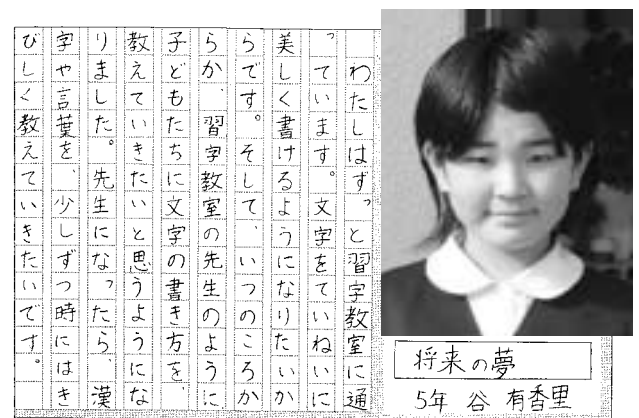 わたしはずっと習字教室に通
っています。文字をていねいに
美しく書けるようになりたいか
らです。そして、いつのころか
らか、習字教室の先生のように
子どもたちに文字の書き方を、
教えていきたいと思うようにな
りました。先生になったら、漢
字や言葉を、少しずつ時にはき
びしく教えていきたいです。
将来の夢
5年 谷 有香里